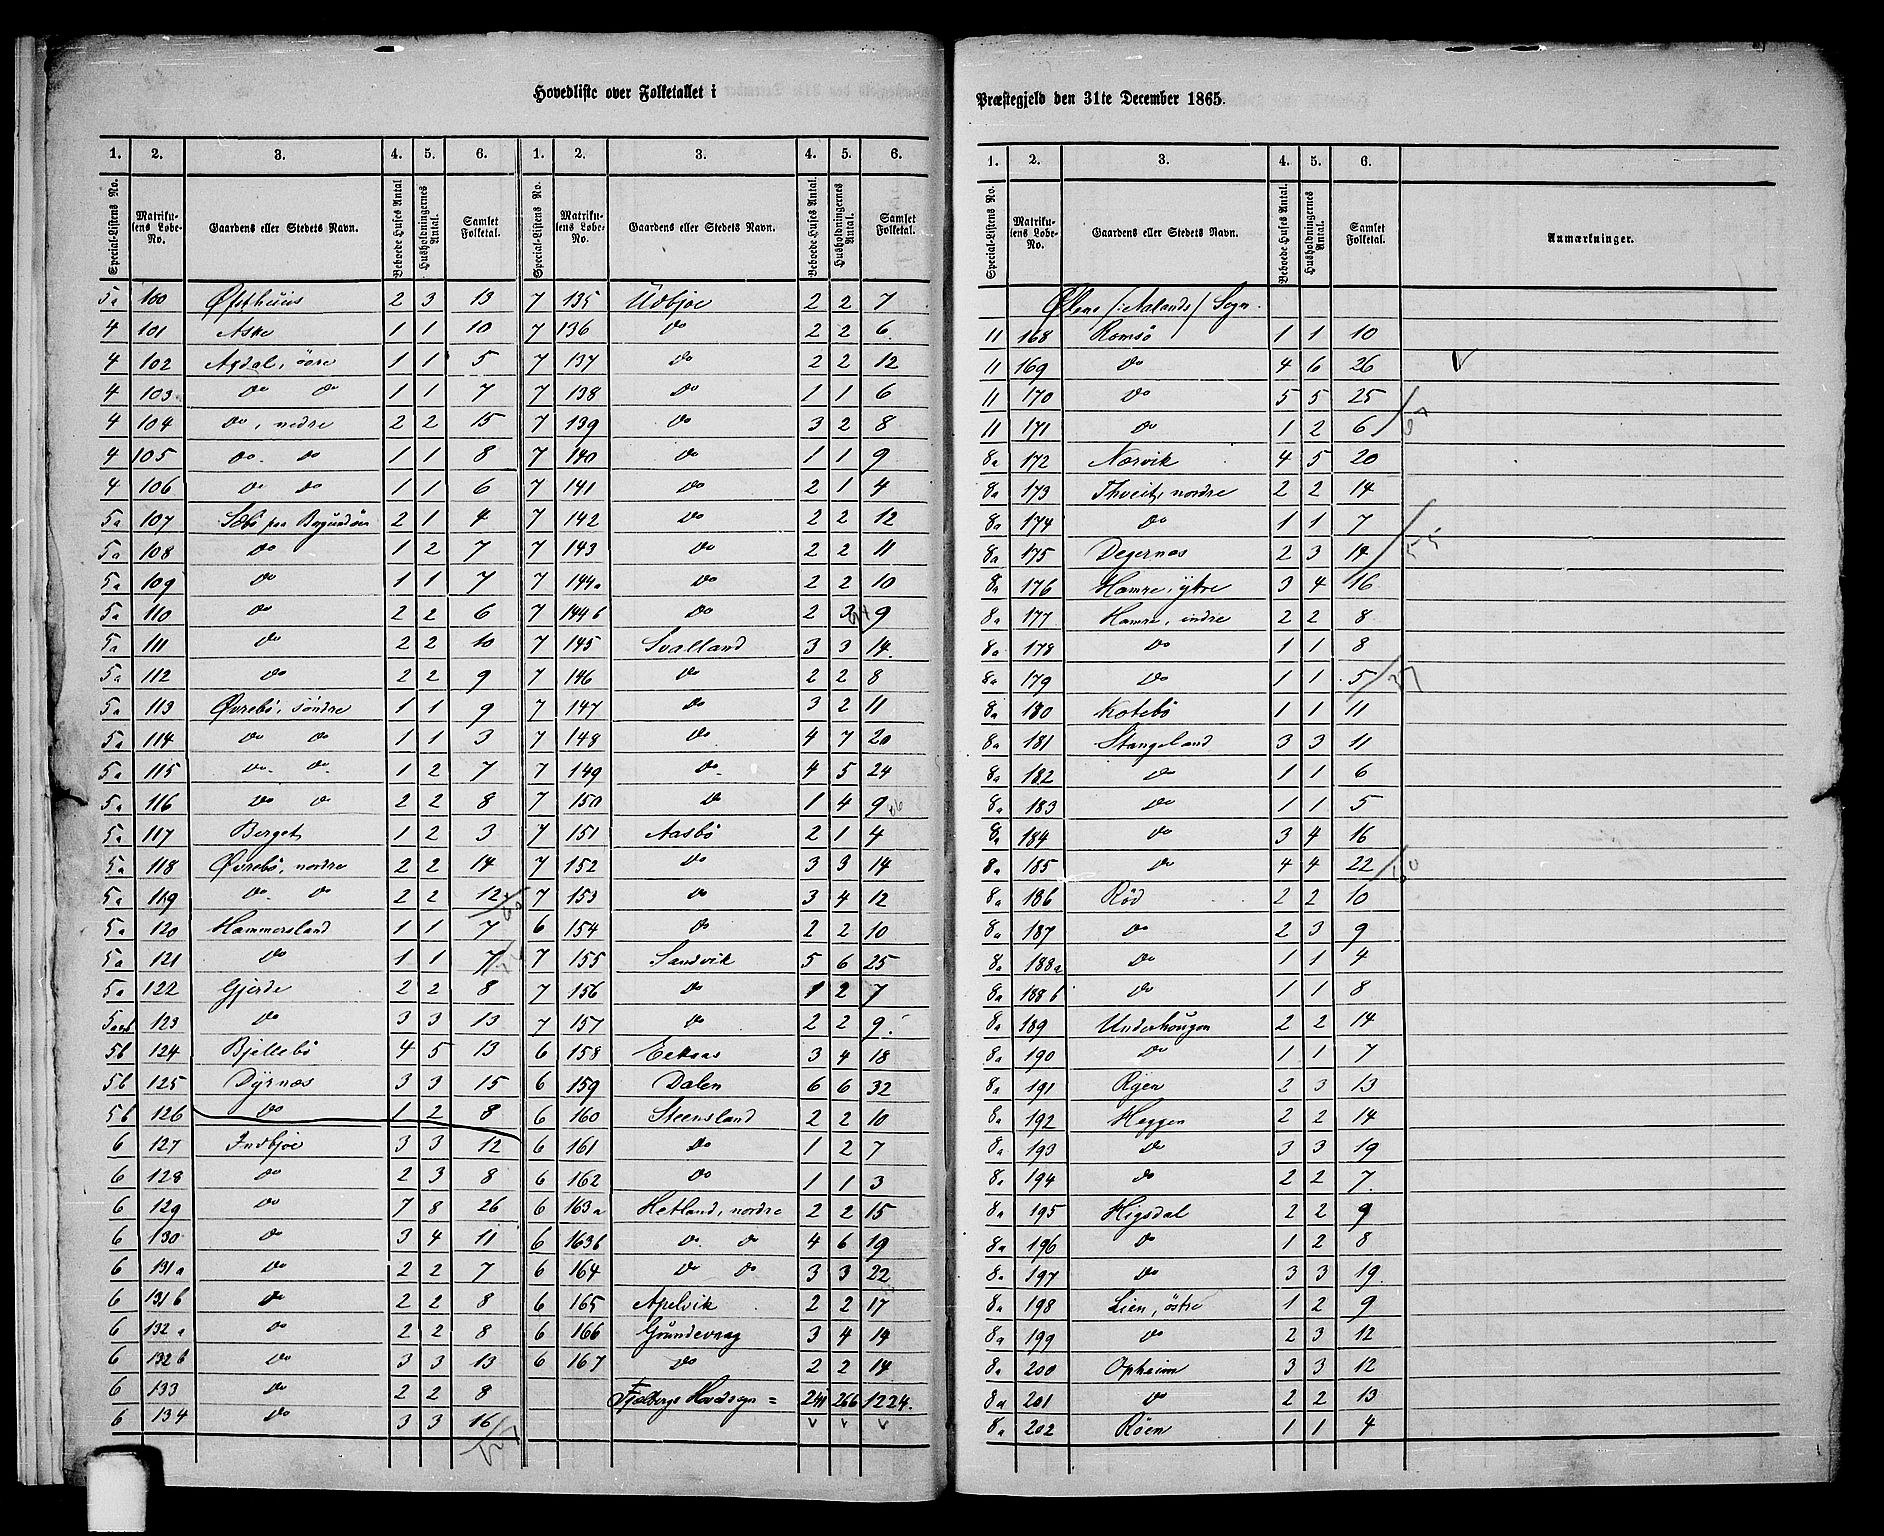 Hovedliste over Folketallet i
1. 2. 3. 4. 5. 6. 1. 2. 3. 4. 5. 6.
Special-Listens No. Matrikulens Løbe-No. Gaardens eller Stedets Navn. Beboede Huses Antal Husholdningernes Antal. Samlet Folketal. Special-Listens No. Matrikulens Løbe-No. Gaardens eller Stedets Navn. Beboede Huses Antal. Husholdningernes Antal. Samlet Folketal.
5a 100 Østhuus 2 3 13 7 135 Udbjoe 2 2 7
4 101 Aske 1 1 10 7 136 Do 2 2 6
4 102 Agdal, øvre 1 1 5 7 137 Do 2 2 12
4 103 Do Do 1 1 7 7 138 Do 1 1 6
4 104 Do, nedre 2 2 15 7 139 Do 3 2 8
4 105 Do. Do 1 1 8 7 140 Do 1 1 9
4 106 Do Do 1 1 6 7 141 Do 2 1 4
5a 107 Sæbø paa Borgundøen 2 1 4 7 142 Do 2 2 12
5a 108 Do 1 2 7 7 143 Do 2 2 11
5a 109 Do 1 1 7 7 144a Do 2 2 10
5a 110 Do 2 2 6 7 144b Do 2 3 9
5a 111 Do 2 2 10 7 145 Svalland 3 3 14
5a 112 Do 2 2 9 7 146 Do 2 2 8
5a 113 Øvrebø, søndre 1 1 9 7 147 Do 3 2 11
5a 114 Do Do 1 1 3 7 148 Do 4 7 20
5a 115 Do. Do. 1 2 7 7 149 Do 4 5 24
5a 116 Do Do 2 2 8 7 150 Do 1 4 9
5a 117 Berget 1 2 3 7 151 Aasbø 2 1 4
5a 118 Øvrebø, nordre 2 2 14 7 152 Do 3 3 14
5a 119 Do. Do 2 2 12 7 153 Do 3 4 12
5a 120 Hammersland 1 1 7 6 154 Do 2 2 10
5a 121 Do 1 1 7 7 155 Sandvik 5 6 25
5a 122 Gjerde 2 2 8 7 156 Do 1 2 7
5a&b 123 Do 3 3 13 7 157 Do 2 2 9
5b 124 Bjellebø 4 5 13 6 158 Eekaas 3 4 18
5b 125 Dyrnæs 3 3 15 6 159 Dalen 6 6 32
5b 126 Do 1 2 8 6 160 Steensland 2 2 10
6 127 Indbjoe 3 3 12 6 161 Do 1 2 7
6 128 Do 2 3 8 6 162 Do 1 1 3
6 129 Do 7 8 26 6 163a Hetland, nordre 2 2 15
6 130 Do 3 4 11 6 163b Do. Do 4 6 19
6 131a Do 2 2 7 6 164 Do Do 3 3 22
6 131b Do 2 2 8 6 165 Apelvik 2 2 17
6 132a Do 2 2 8 6 166 Grundevaag 3 4 14
6 132b Do 3 3 13 6 167 Do 2 2 14
6 133 Do 2 2 8 Fjelbergs Hovedsogn = 241 266 1224.
6 134 Do 3 3 16
Præstegjeld den 31te December 1865.
1. 2. 3. 4. 5. 6.
Special-Listens No. Matrikulens Løbe-No. Gaardens eller Stedets Navn. Beboede Huses Antal. Husholdningernes Antal. Samlet Folketal. Anmærkninger.
Ølens /: Aalands / Sogn.
11 168 Romsø 1 1 10
11 169 Do 4 6 26
11 170 Do 5 5 25
11 171 Do 1 2 6 67
8a 172 Nærvik 4 5 20
8a 173 Thveit, nordre 2 2 14
8a 174 Do 1 1 7
8a 175 Degernæs 2 3 14 55
8a 176 Hamre, ytre 3 4 16
8a 177 Hamre, indre 2 2 8
8a 178 Do 1 1 8
8a 179 Do 1 1 5 37
8a 180 Kotebø 1 1 11
8a 181 Stangeland 3 3 11
8a 182 Do 1 1 6
8a 183 Do 1 1 5
8a 184 Do 3 4 16
8a 185 Do 4 4 22 60
8a 186 Rød 2 2 10
8a 187 Do 2 3 9
8a 188a Do 1 1 4
8a 188b Do 1 1 8
8a 189 Underhougen 2 2 14
8a 190 Do 1 1 7
8a 191 Ryen 2 3 13
8a 192 Heggen 2 2 14
8a 193 Do 3 3 19
8a 194 Do 2 2 7
8a 195 Higsdal 2 2 9
8a 196 Do 1 2 8
8a 197 Do 3 3 19
8a 198 Lien, østre 1 2 9
8a 199 Do 2 3 12
8a 200 Opheim 3 3 12
8a 201 Do 2 2 13
8a 202 Røen 1 1 4